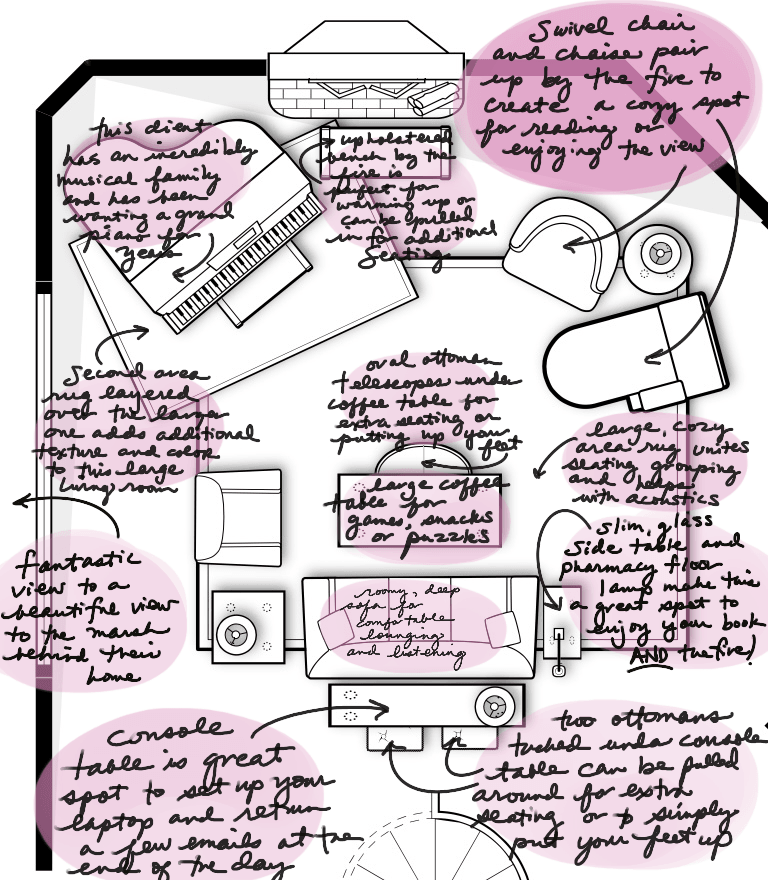 Swivel chair
and chaise pair
up by the fire to
create a cozy spot
for reading or
enjoying the view
this client
has an incredibly
musical family
and has been
wanting a grand
piano for
years
upholstered
bench by the
fire is
perfect for
warming up or
can be pulled
in for additional
seating
Second area
rug layered
over the larger
one adds additional
texture and color
to this large
living room
oval ottoman
telescopes under
coffee table for
extra seating or
putting up your
feet
large, cozy
area rug unites
seating grouping
and helps
with acoustics
large coffee
table for
games, snacks
or puzzles
slim, glass
side table and
pharmacy floor
lamp make this
a great spot to
enjoy your book
AND the fire!
fantastic
view to a
beautiful view
to the marsh
behind their
home
roomy, deep
sofa for
comfortable
lounging
and listening
Console
table is great
spot to set up your
laptop and return
a few emails at the
end of the day
two ottomans
tucked under console
table can be pulled
around for extra
seating or to simply
put your feet up